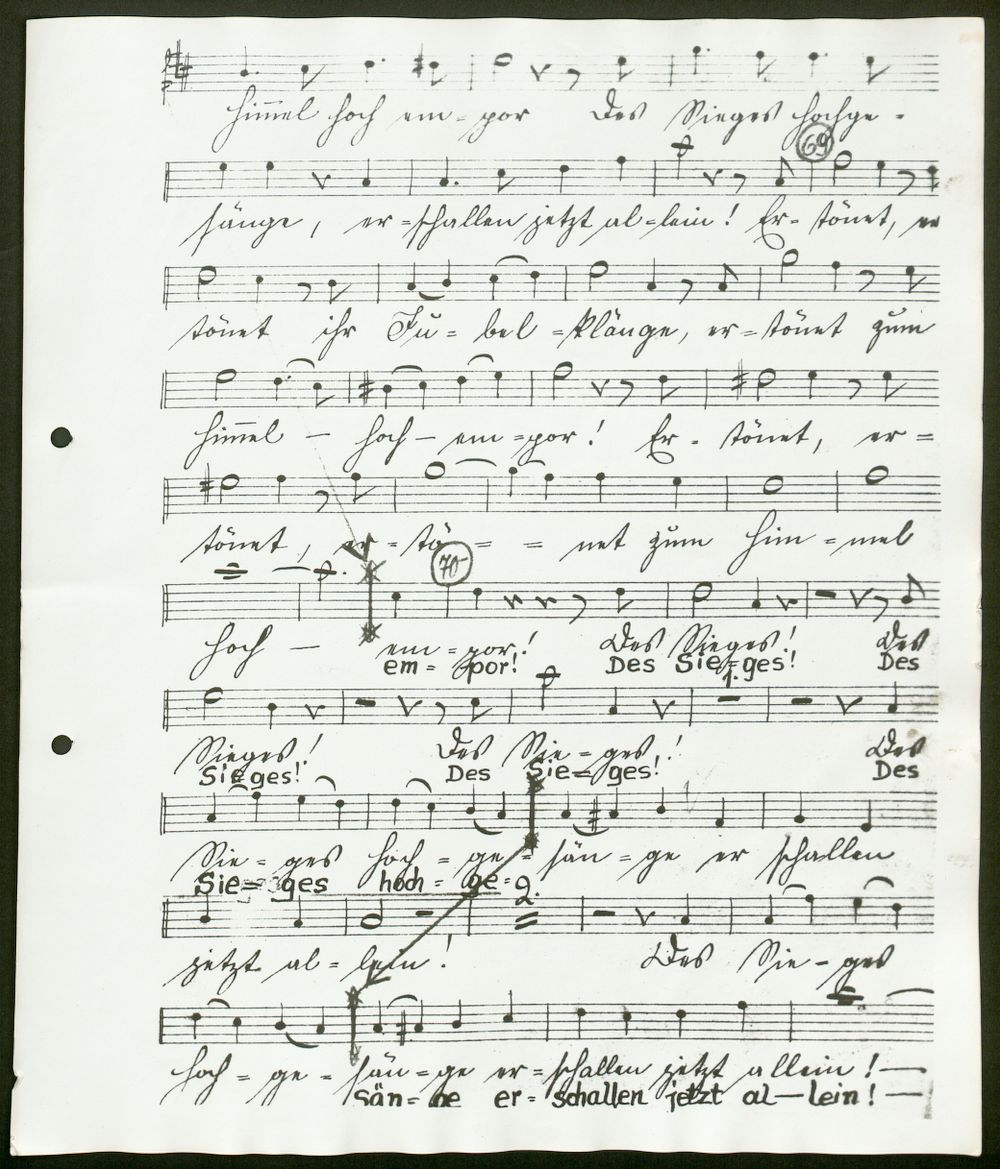 Himmel hoch em-por Des Sieges Hochge-
69
sänge, er-schallen jetzt al-lein! Er-tönet, er
tönet ihr Ju-bel-klänge, er-tönet zum
Himmel — hoch — em-por! Er-tönet, er=
tönet, er-tö- = = net zum Him=mel
70
hoch — em-por! Des Sieges! Des
em= por! Des Sie=ges! Des
1.
Sieges! Des Sie-ges! Des
Sieges! Des Sie= ges! Des
Sie-ges hoch-ge-sän-ge er schallen
Sie= ges hoch= ge=
2.
jetzt al-lein! Des Sie-ges
hoch=ge-sän=ge er=schallen jetzt allein! —
sän= ge er= schallen jetzt al—lein! —